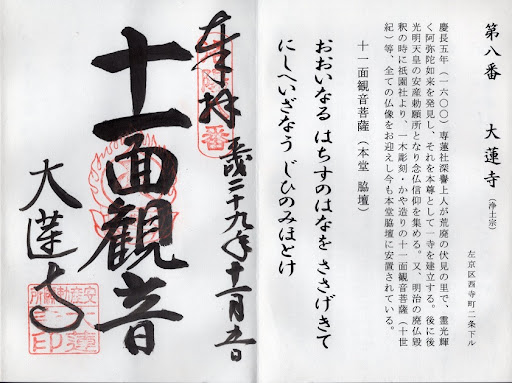 第八番　大蓮寺（浄土宗）
左京区西寺町二条下ル
慶長五年（一六〇〇）専蓮社深譽上人が荒廃の伏見の里で、霊光輝
く阿弥陀如来を発見し、それを本尊として一寺を建立する。後に後
光明天皇の安産勅願所となり念仏信仰を集める。又、明治の廃仏毀
釈の時に祇園社より、一木彫刻・かや造りの十一面観音菩薩（十世
紀）等、全ての仏像をお迎えし今も本堂脇壇に安置されている。
十一面観音菩薩（本堂 脇壇）
おおいなる はちすのはなを ささげきて
にしへいざなう じひのみほとけ
奉拝
平成二十九年十一月五日
十一面観音
大蓮寺